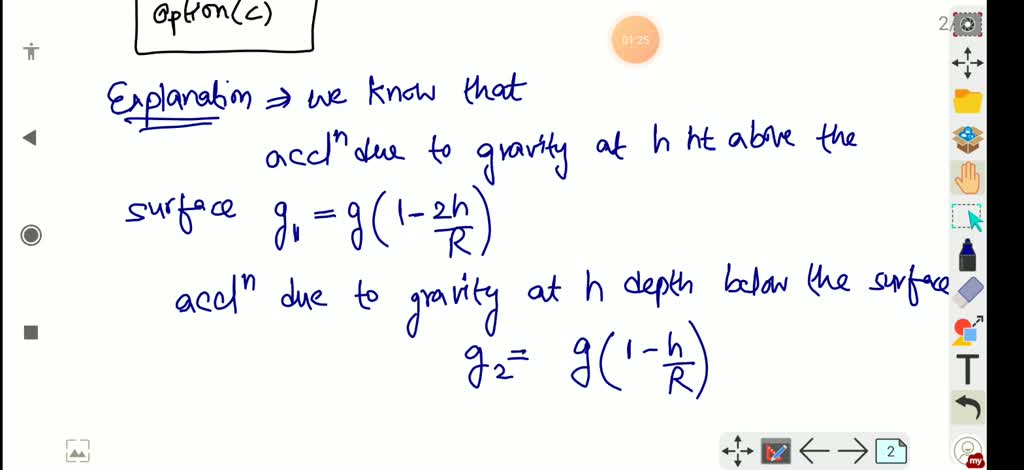 option(c)
2/
01:25
Explanation ⇒ we know that
accln due to gravity at h ht above the
surface g₁ = g(1 - 2h/R)
accln due to gravity at h depth below the surface
g₂ = g(1 - h/R)
T
2
my